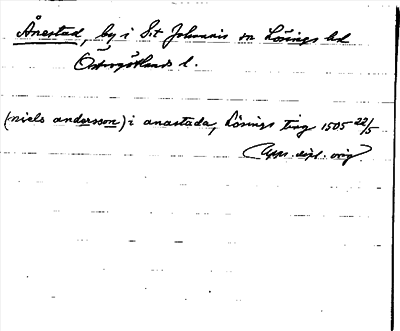 Ånestad, by i S:t Johannis sn Lösings hd
Östergötlands l.
(niels andersson) i anastada, Lösings ting 1505 22/5
Upps. dipl. orig